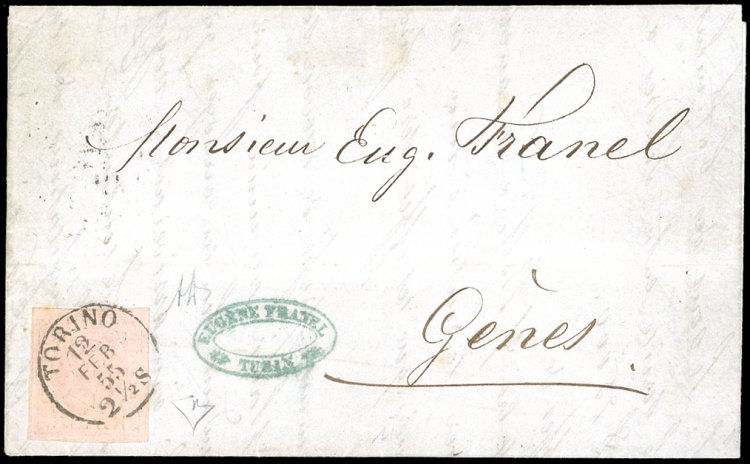 Monsieur Eug. Franel
Gènes.
EUGÈNE FRANEL
TURIN
TORINO
12
FEB
55
2 1/2 S